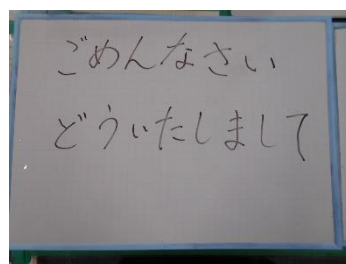 ごめんなさい
どういたしまして